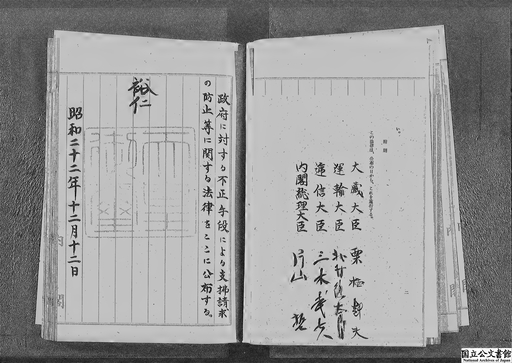 附則
この法律は、公布の日から、これを施行する。
大藏大臣 栗栖赳夫
運輸大臣 北村德太郎
逓信大臣 三木武夫
内閣総理大臣 片山哲
政府に対する不正手段による支拂請求
の防止等に関する法律をここに公布する。
裕仁
天皇御璽
昭和二十二年十二月十二日
国立公文書館
National Archives of Japan